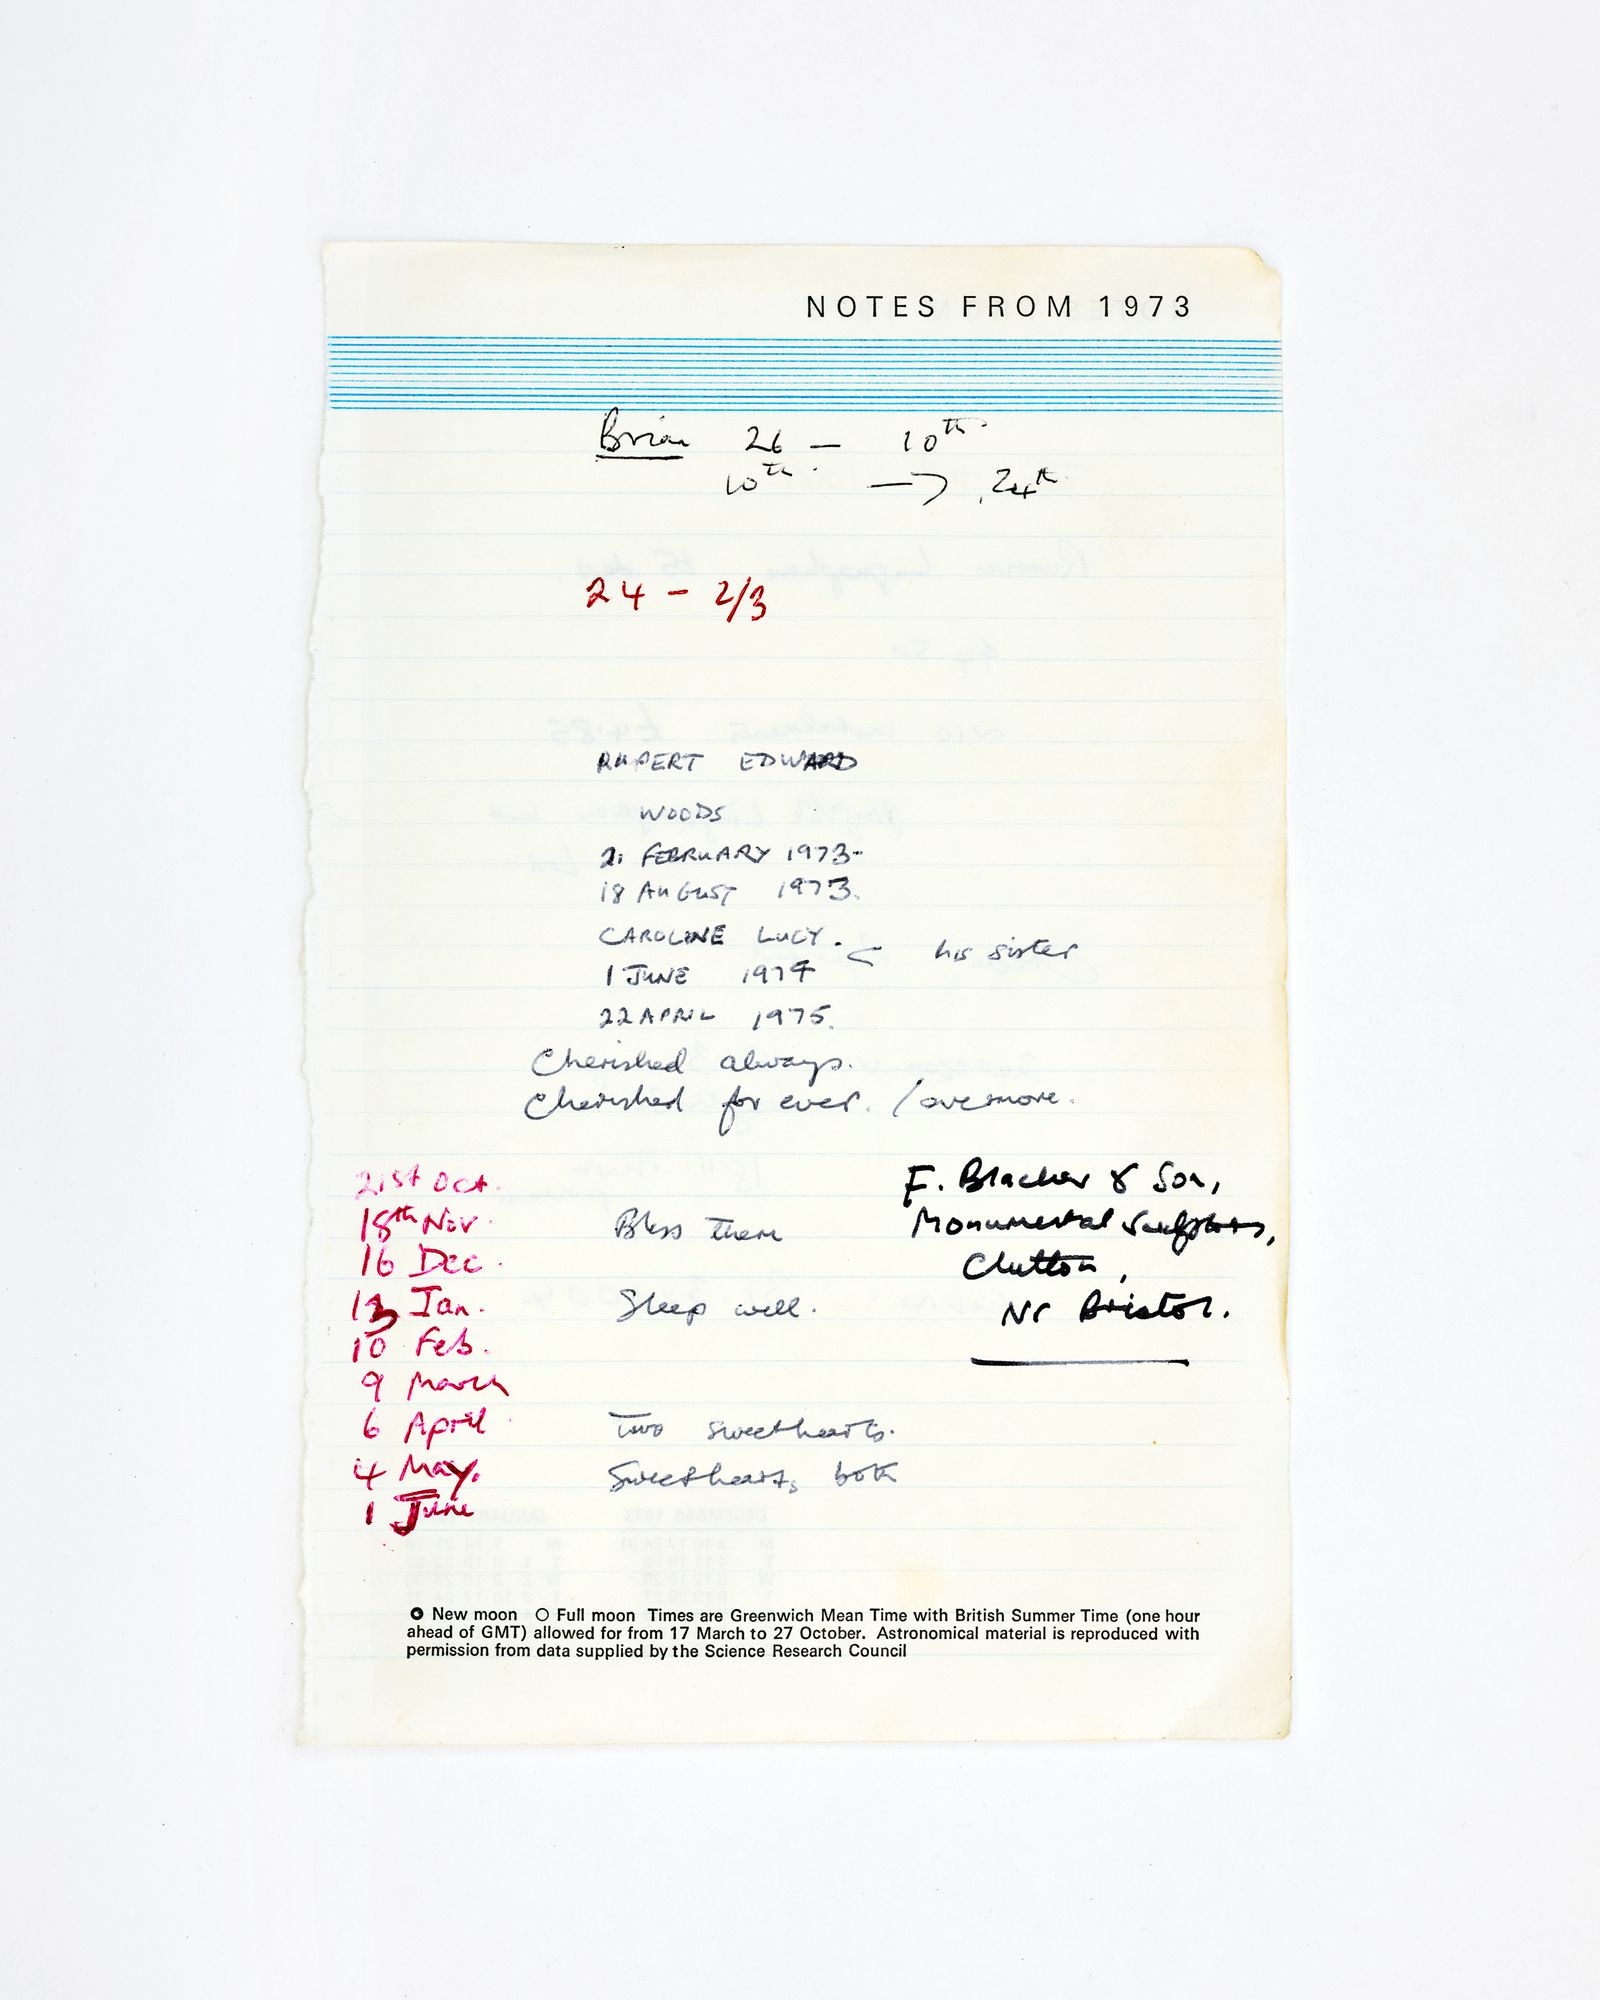 NOTES FROM 1973
Brian 26 — 10th
10th → 24th
24 - 2/3
RUPERT EDWARD
WOODS
21 FEBRUARY 1973-
18 AUGUST 1973.
CAROLINE LUCY. his sister
1 JUNE 1974
22 APRIL 1975.
Cherished always.
Cherished for ever. / evermore.
21st Oct.
18th Nov.
16 Dec.
13 Jan.
10 Feb.
9 March
6 April
4 May.
1 June
Bless them
Sleep well.
Two sweethearts.
Sweethearts both
F. Blacker & Son,
Monumental Sculptors,
Clutton,
Nr Bristol.
New moon Full moon Times are Greenwich Mean Time with British Summer Time (one hour
ahead of GMT) allowed for from 17 March to 27 October. Astronomical material is reproduced with
permission from data supplied by the Science Research Council